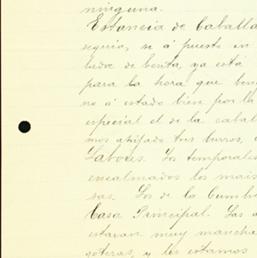 ninguna.
Estancia de Caballa
seguia, se á puesto en
ludre de benta, ya esta
para la hora que bin
no á estado bien por lo
especial el de la cabal
mos ahijado tres burros, e
Labores. Los temporales
encalmados los mais
sas. Los de la Cumbr
Casa Principal. Las a
estavan muy mancha
goteras, y les estamos